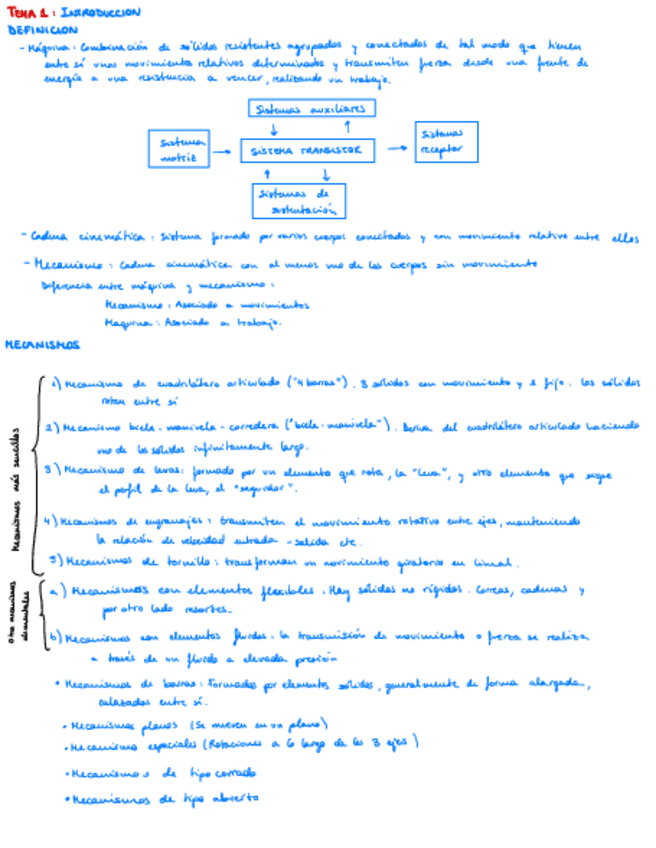 TEMA 1: INTRODUCCION
DEFINICION
- Máquina: Combinación de sólidos resistentes agrupados y conectados de tal modo que tienen
entre sí unos movimiento relativos determinados y transmiten fuerza desde una fuente de
energía a una resistencia a vencer, realizando un trabajo.
Sistemas auxiliares
Sistema
motriz
SISTEMA TRANSISTOR
Sistemas
receptor
Sistemas de
sustentación
- Cadena cinemática: Sistema formado por varios cuerpos conectados y con movimiento relativo entre ellos
- Mecanismo: Cadena cinemática con al menos uno de los cuerpos sin movimiento
Diferencia entre máquina y mecanismo:
Mecanismo: Asociado a movimientos
Maquina: Asociado a trabajo.
MECANISMOS
Mecanismos más sencillos
1) Mecanismo de cuadrilátero articulado ("4 barras"). 3 sólidos con movimiento y 1 fijo. Los sólidos
rotan entre sí
2) Mecanismo biela-manivela-corredera ("biela-manivela"). Deriva del cuadrilátero articulado haciendo
uno de los sólidos infinitamente largo.
3) Mecanismo de levas: formado por un elemento que rota, la "leva", y otro elemento que sigue
el perfil de la leva, el "seguidor".
4) Mecanismos de engranajes: transmiten el movimiento rotativo entre ejes, manteniendo
la relación de velocidad entrada-salida cte.
5) Mecanismos de tornillo: transforman un movimiento giratorio en lineal.
Otros mecanismos
elementales
a) Mecanismos con elementos flexibles. Hay sólidos no rígidos. Correas, cadenas y
por otro lado resortes.
b) Mecanismos con elementos fluidos. La transmisión de movimiento o fuerza se realiza
a través de un fluido a elevada presión
• Mecanismos de barras: Formados por elementos sólidos, generalmente de forma alargada,
enlazados entre sí.
• Mecanismos planos (Se mueven en un plano)
• Mecanismo espaciales (Rotaciones a lo largo de los 3 ejes)
• Mecanismos de tipo cerrado
• Mecanismos de tipo abierto